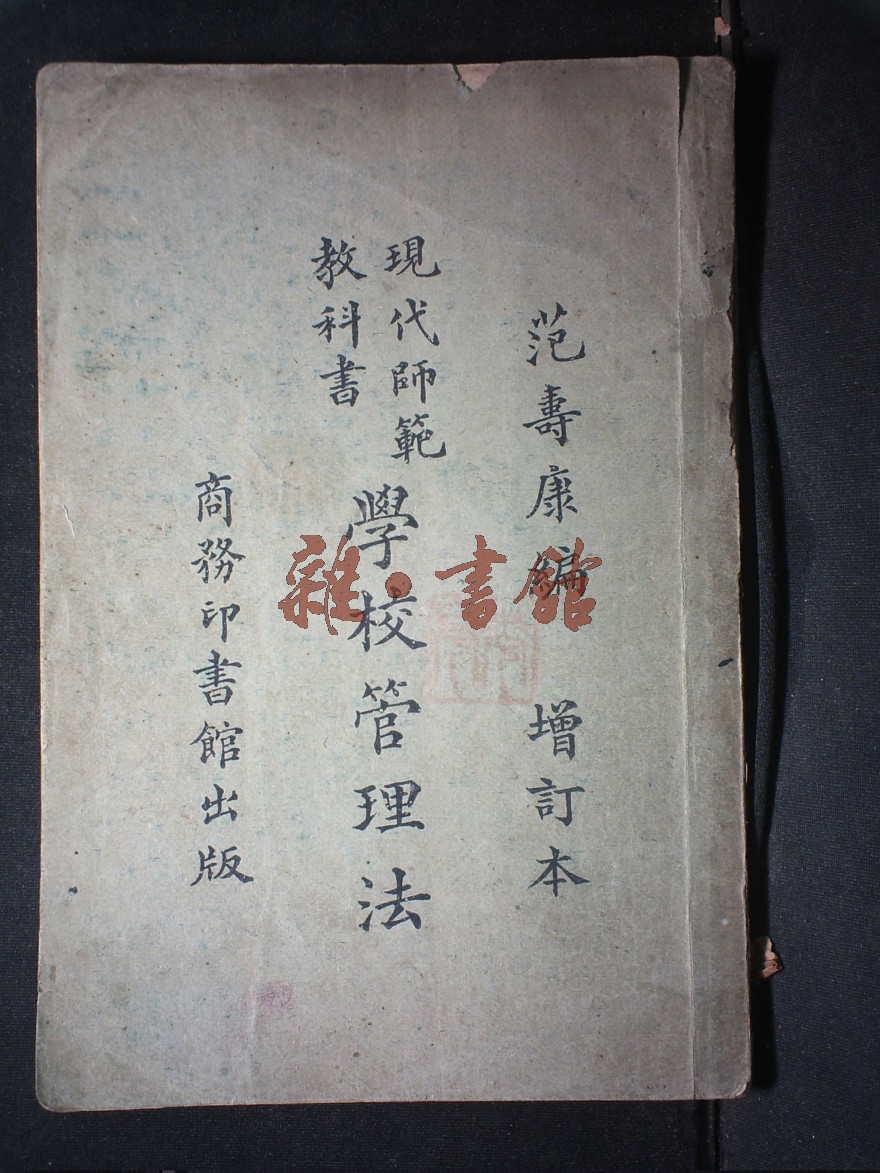 范壽康編 增訂本
現代師範
教科書
學校管理法
商務印書館出版
雜·書館